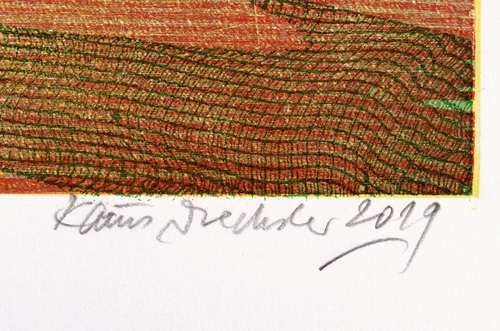 Klaus Drechsler 2019